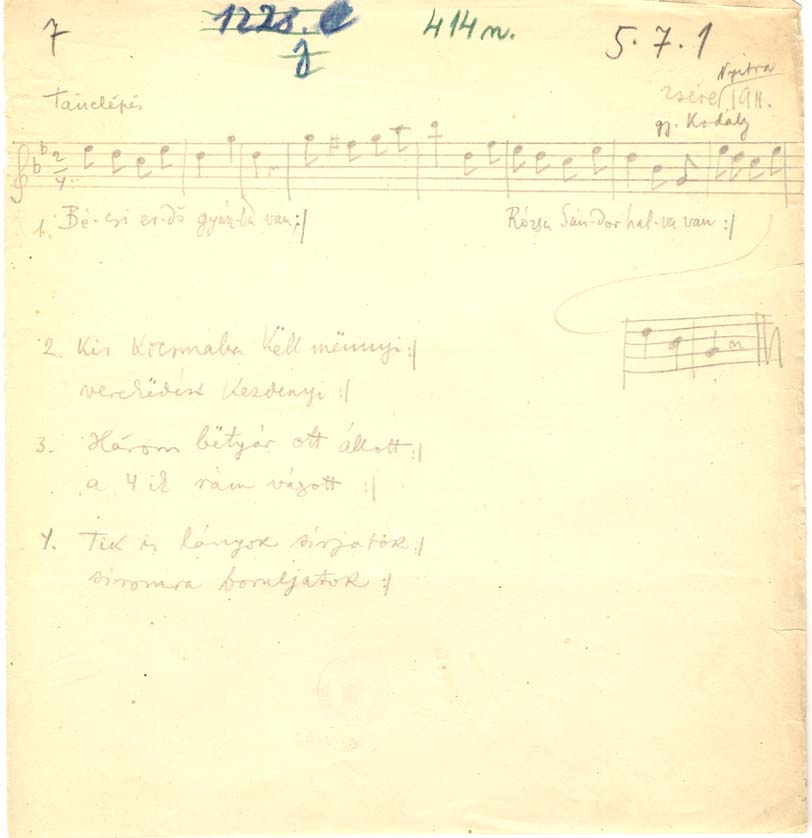 7 1228. e 414 n. 5. 7. 1
j
Nyitra
Tánclépés Zsére 1911.
gj. Kodály
2/4
1. Bé-csi er-dő gyász-ba van :/ Rózsa Sán-dor hal-va van :/
2. Kis kocsmába këll mënnyi :/
verekëdést kezdenyi :/
3. Három bëtyár ott állott :/
a 4 ik rám vágott :/
4. Tik is lányok sírjatok :/
síromra boruljatok :/